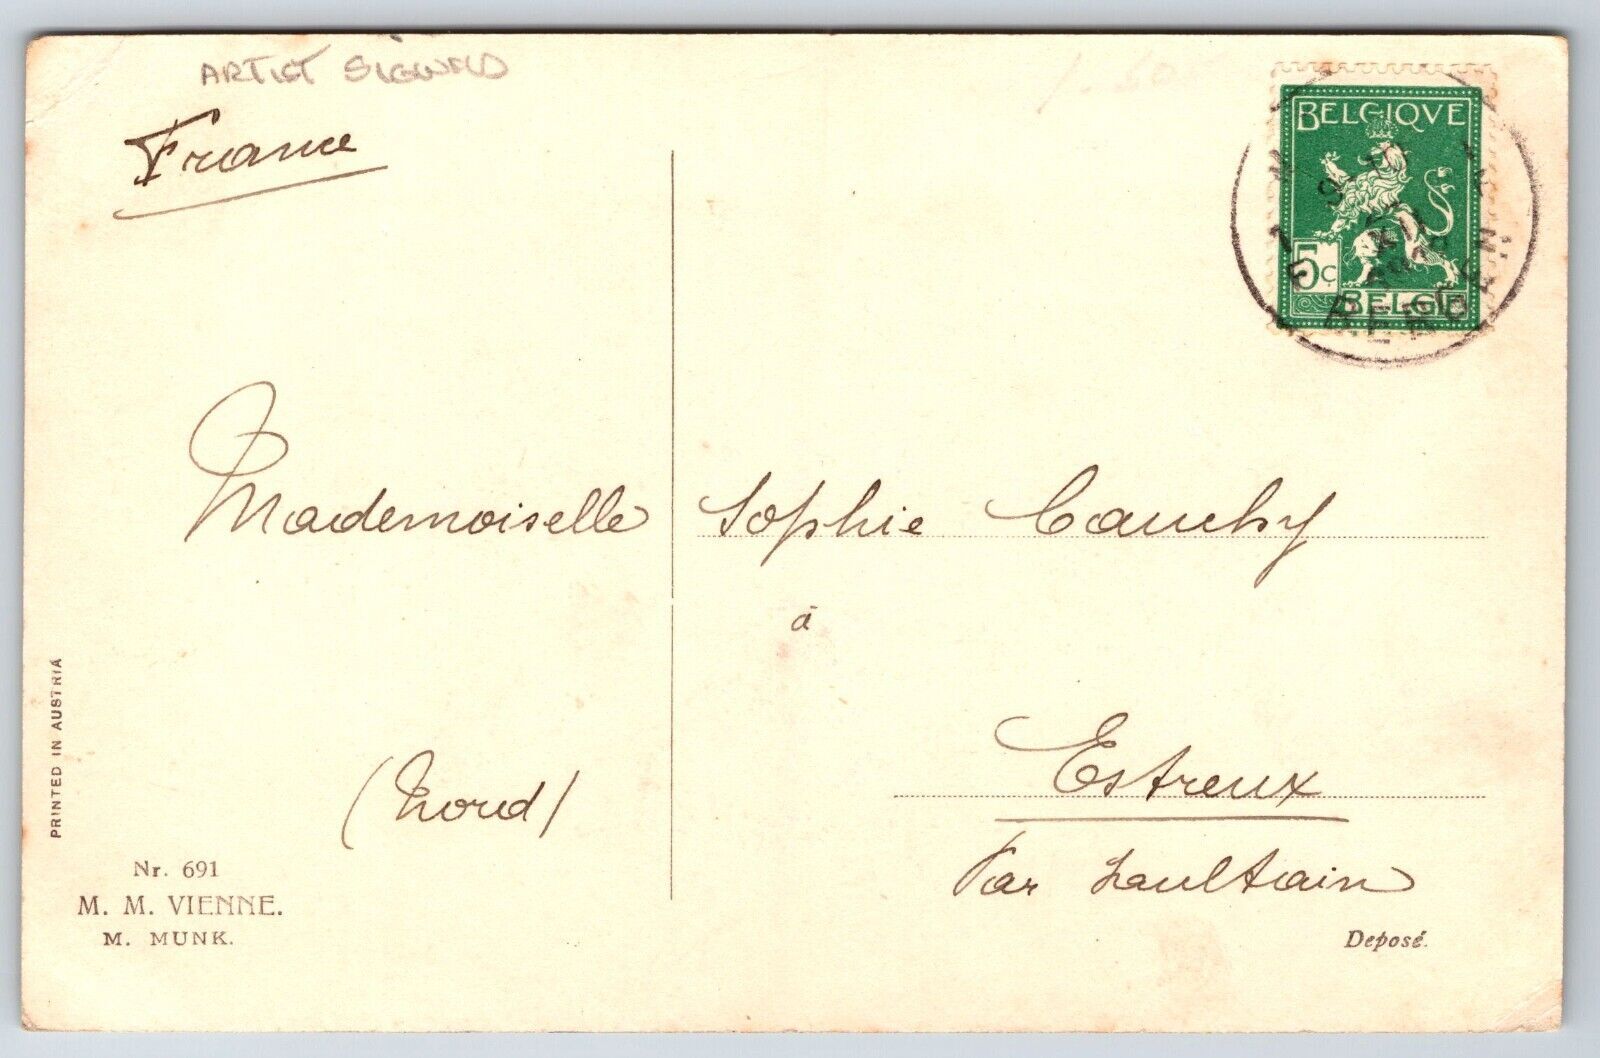 ARTIST SIGNED
France
BELGIQVE
5c
BELGIË
XII
BERGEN
Mademoiselle Sophie Cauchy
à
Estreux
(Nord)
Par Saultain
PRINTED IN AUSTRIA
Nr. 691
M. M. VIENNE.
M. MUNK.
Deposé.